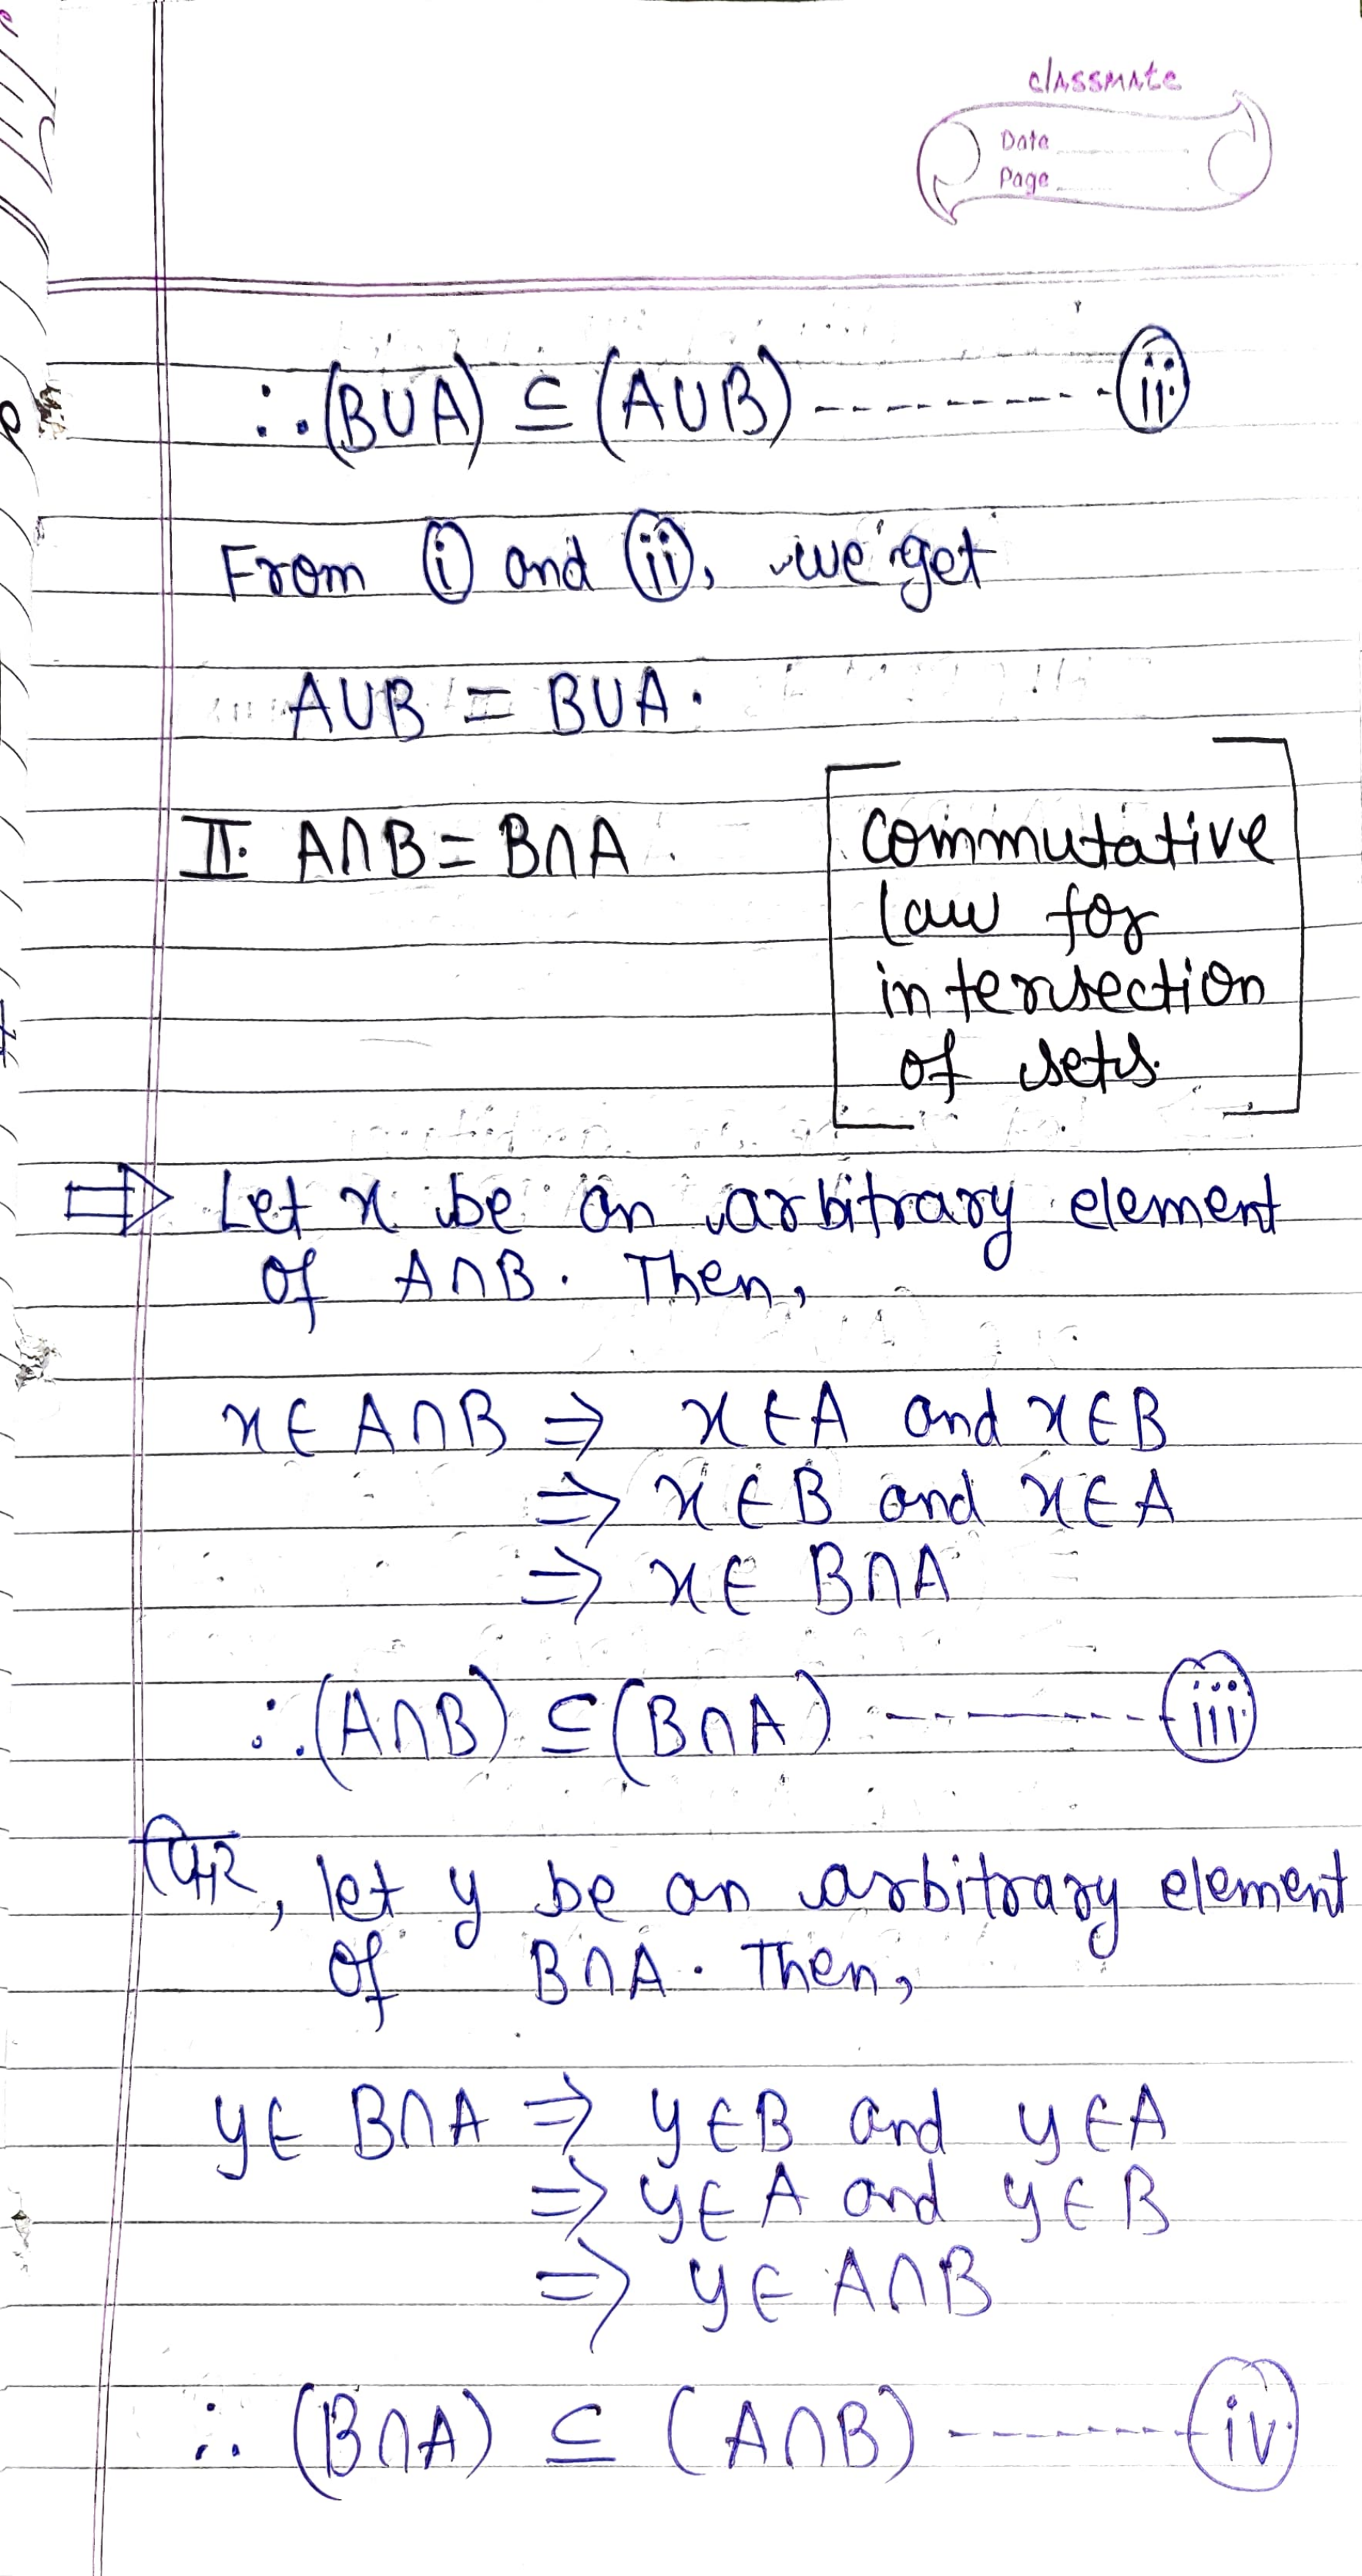 classmate
Date
Page
∴ (B∪A) ⊆ (A∪B) ---------- (ii)
From (i) and (ii), we get
A∪B = B∪A.
II. A∩B = B∩A.
[Commutative
law for
intersection
of sets.]
⇒ Let x be an arbitrary element
of A∩B. Then,
x ∈ A∩B ⇒ x ∈ A and x ∈ B
⇒ x ∈ B and x ∈ A
⇒ x ∈ B∩A
∴ (A∩B) ⊆ (B∩A) --------- (iii)
फिर, let y be an arbitrary element
of B∩A. Then,
y ∈ B∩A ⇒ y ∈ B and y ∈ A
⇒ y ∈ A and y ∈ B
⇒ y ∈ A∩B
∴ (B∩A) ⊆ (A∩B) -------- (iv)